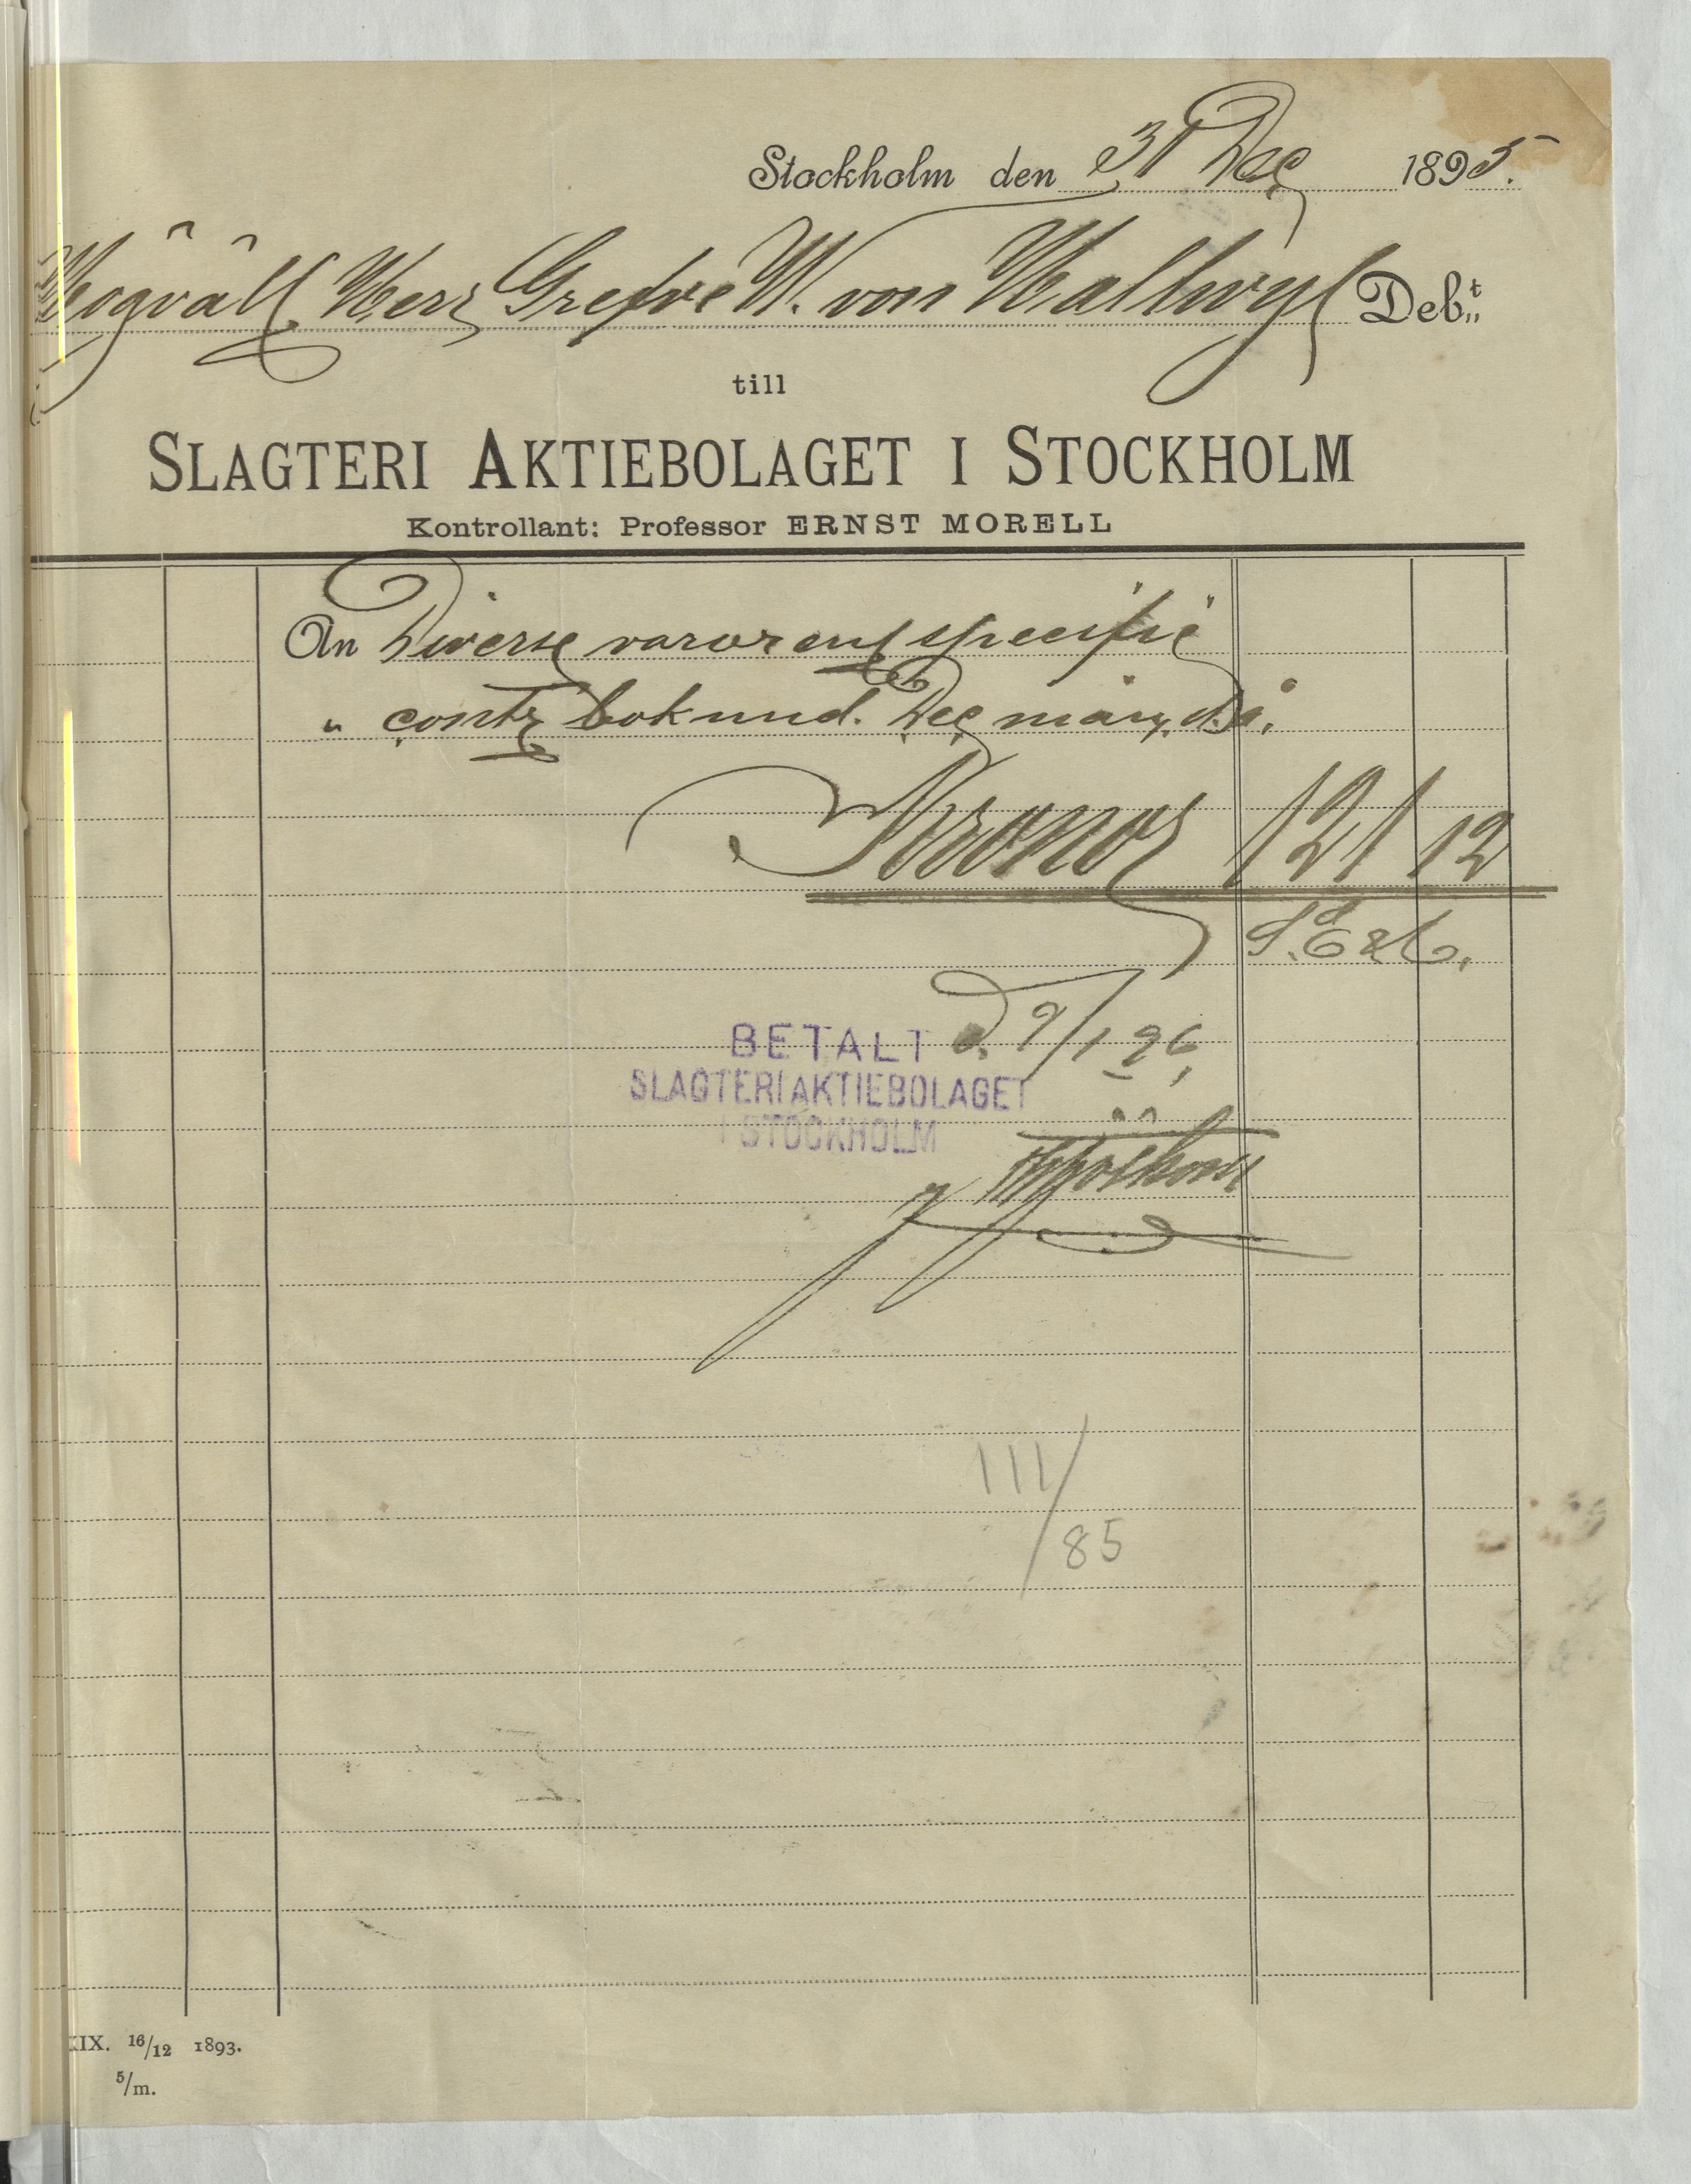 Stockholm den 31 Dec 1895.
Högväll Herr Grefve W. von Hallwyl Debt
till
SLAGTERI AKTIEBOLAGET I STOCKHOLM
Kontrollant: Professor ERNST MORELL
An Diverse varor enl specific
" contr bok und. Dec mån, d.å.
Kronor 121 12
S. E & O.
BETALT d. 9/1 96,
SLAGTERIAKTIEBOLAGET
I STOCKHOLM
111/85
XIX. 16/12 1893.
5/m.